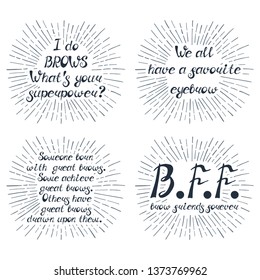 I do
BROWS
What's your
superpower?
We all
have a favourite
eyebrow
Someone born
with great brows.
Some achieve
great brows.
Others have
great brows
drawn upon them.
B.F.F.
brow friends forever
shutterstock.com · 1373769962